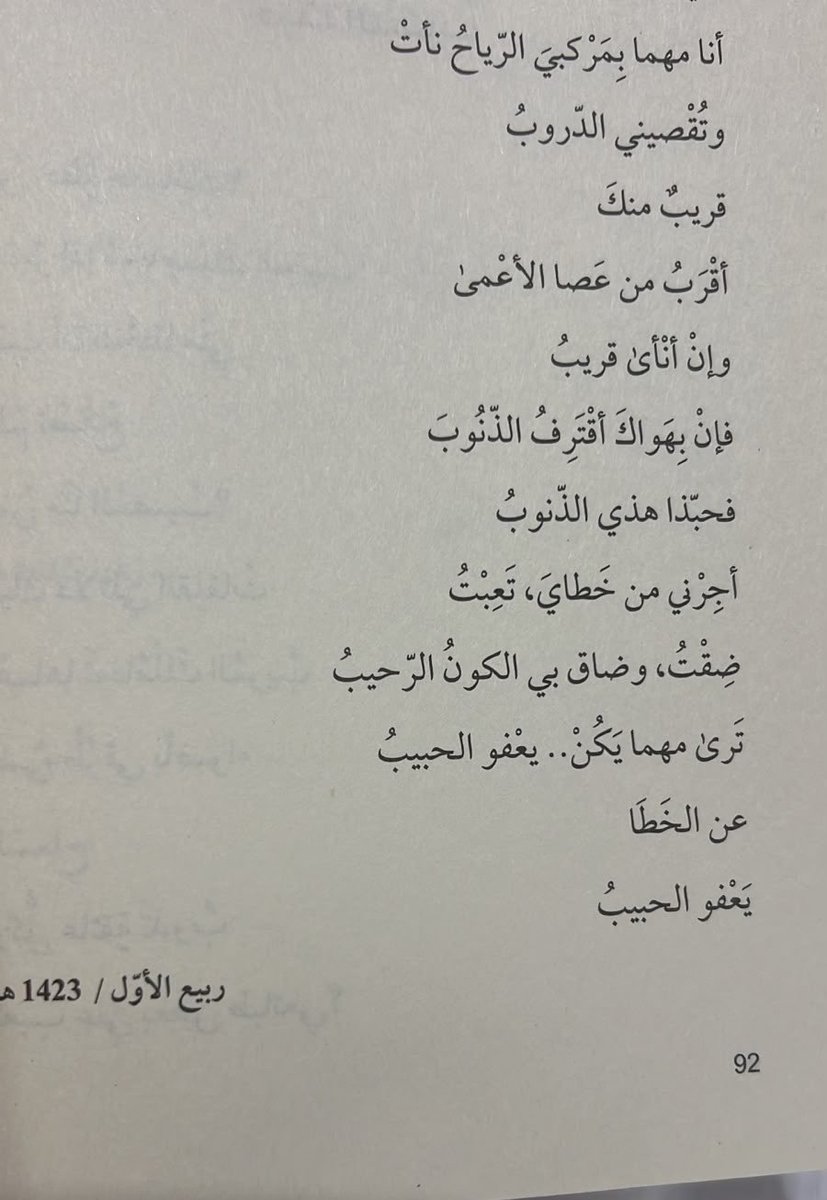 أنا مهما بِمَرْكبيَ الرّياحُ نأتْ
وتُقْصيني الدّروبُ
قريبٌ منكَ
أقْرَبُ من عَصا الأعْمىٰ
وإنْ أنْأىٰ قريبُ
فإنْ بِهَواكَ أقْتَرِفُ الذّنُوبَ
فحبّذا هذي الذّنوبُ
أجِرْني من خَطايَ، تَعِبْتُ
ضِقْتُ، وضاق بي الكونُ الرّحيبُ
تَرىٰ مهما يَكُنْ.. يعْفو الحبيبُ
عن الخَطَا
يَعْفو الحبيبُ
ربيع الأوّل / 1423 هـ
92